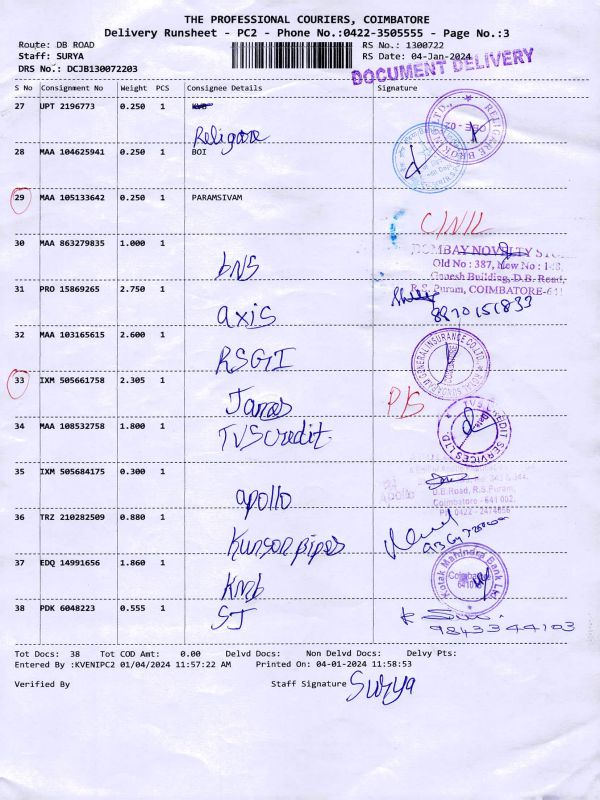 THE PROFESSIONAL COURIERS, COIMBATORE
Delivery Runsheet - PC2 - Phone No.:0422-3505555 - Page No.:3
Route: DB ROAD RS No.: 1300722
Staff: SURYA RS Date: 04-Jan-2024
DRS No.: DCJB130072203
DOCUMENT DELIVERY
S No Consignment No Weight PCS Consignee Details Signature
27 UPT 2196773 0.250 1
Religare
28 MAA 104625941 0.250 1 BOI
29 MAA 105133642 0.250 1 PARAMSIVAM
C/N/L
30 MAA 863279835 1.000 1
BNS
BOMBAY NOVELTY
Old No : 387, New No : 148,
Ganesh Building, D.B. Road,
R.S. Puram, COIMBATORE-641
31 PRO 15869265 2.750 1
axis
8870151833
32 MAA 103165615 2.600 1
RSGI
33 IXM 505661758 2.305 1
P/S
34 MAA 108532758 1.800 1
TVS credit
TVS CREDIT SERVICES LTD
35 IXM 505684175 0.300 1
apollo
D.B.Road, R.S.Puram,
Coimbatore - 641 002.
36 TRZ 210282509 0.880 1
pipes
37 EDQ 14991656 1.860 1
KMB
Kotak Mahindra Bank Ltd.
Coimbatore
38 PDK 6048223 0.555 1
ST
9843344103
Tot Docs: 38 Tot COD Amt: 0.00 Delvd Docs: Non Delvd Docs: Delvy Pts:
Entered By :KVENIPC2 01/04/2024 11:57:22 AM Printed On: 04-01-2024 11:58:53
Verified By Staff Signature Surya